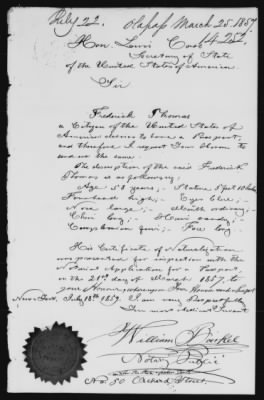 July 22.
March 25. 1857
Hon. Lewis Cass
Secretary of State
of the United States of America
Sir
Frederick Thomas
a Citizen of the United States of
America desires to have a Passport
and therefore I request Your Honor to
send me the same.
The description of the said Frederick
Thomas is as following:
Age 58 years; Stature 5 feet
Forehead high; Eyes blue;
Nose large; Mouth ordinary;
Chin long; Hair sandy;
Complexion fair; Face long
His Certificate of Naturalization
was presented for inspection with the
Notarial Application for a Passport
on the 21st day of March 1857, to
your Honor
New York, July 18th 1857. I am very Respectfully
Your most obedient Servant
William
Notary Public
No. 50 Orchard Street.